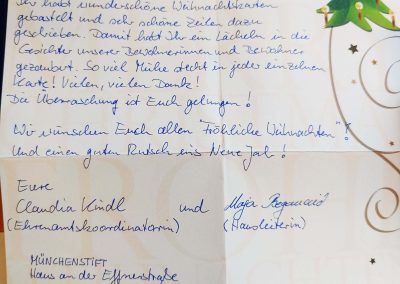 Ihr habt wunderschöne Weihnachtskarten
gebastelt und sehr schöne Zeilen dazu
geschrieben. Damit habt Ihr ein Lächeln in die
Gesichter unserer Bewohnerinnen und Bewohner
gezaubert. So viel Mühe steckt in jeder einzelnen
Karte! Vielen, vielen Dank!
Die Überraschung ist Euch gelungen!
Wir wünschen Euch allen "Fröhliche Weihnachten"!
Und einen guten Rutsch ins Neue Jahr!
Eure
Claudia Kindl und Maja
(Ehrenamtskoordinatorin) (Hausleiterin)
MÜNCHENSTIFT
Haus an der Effnerstraße